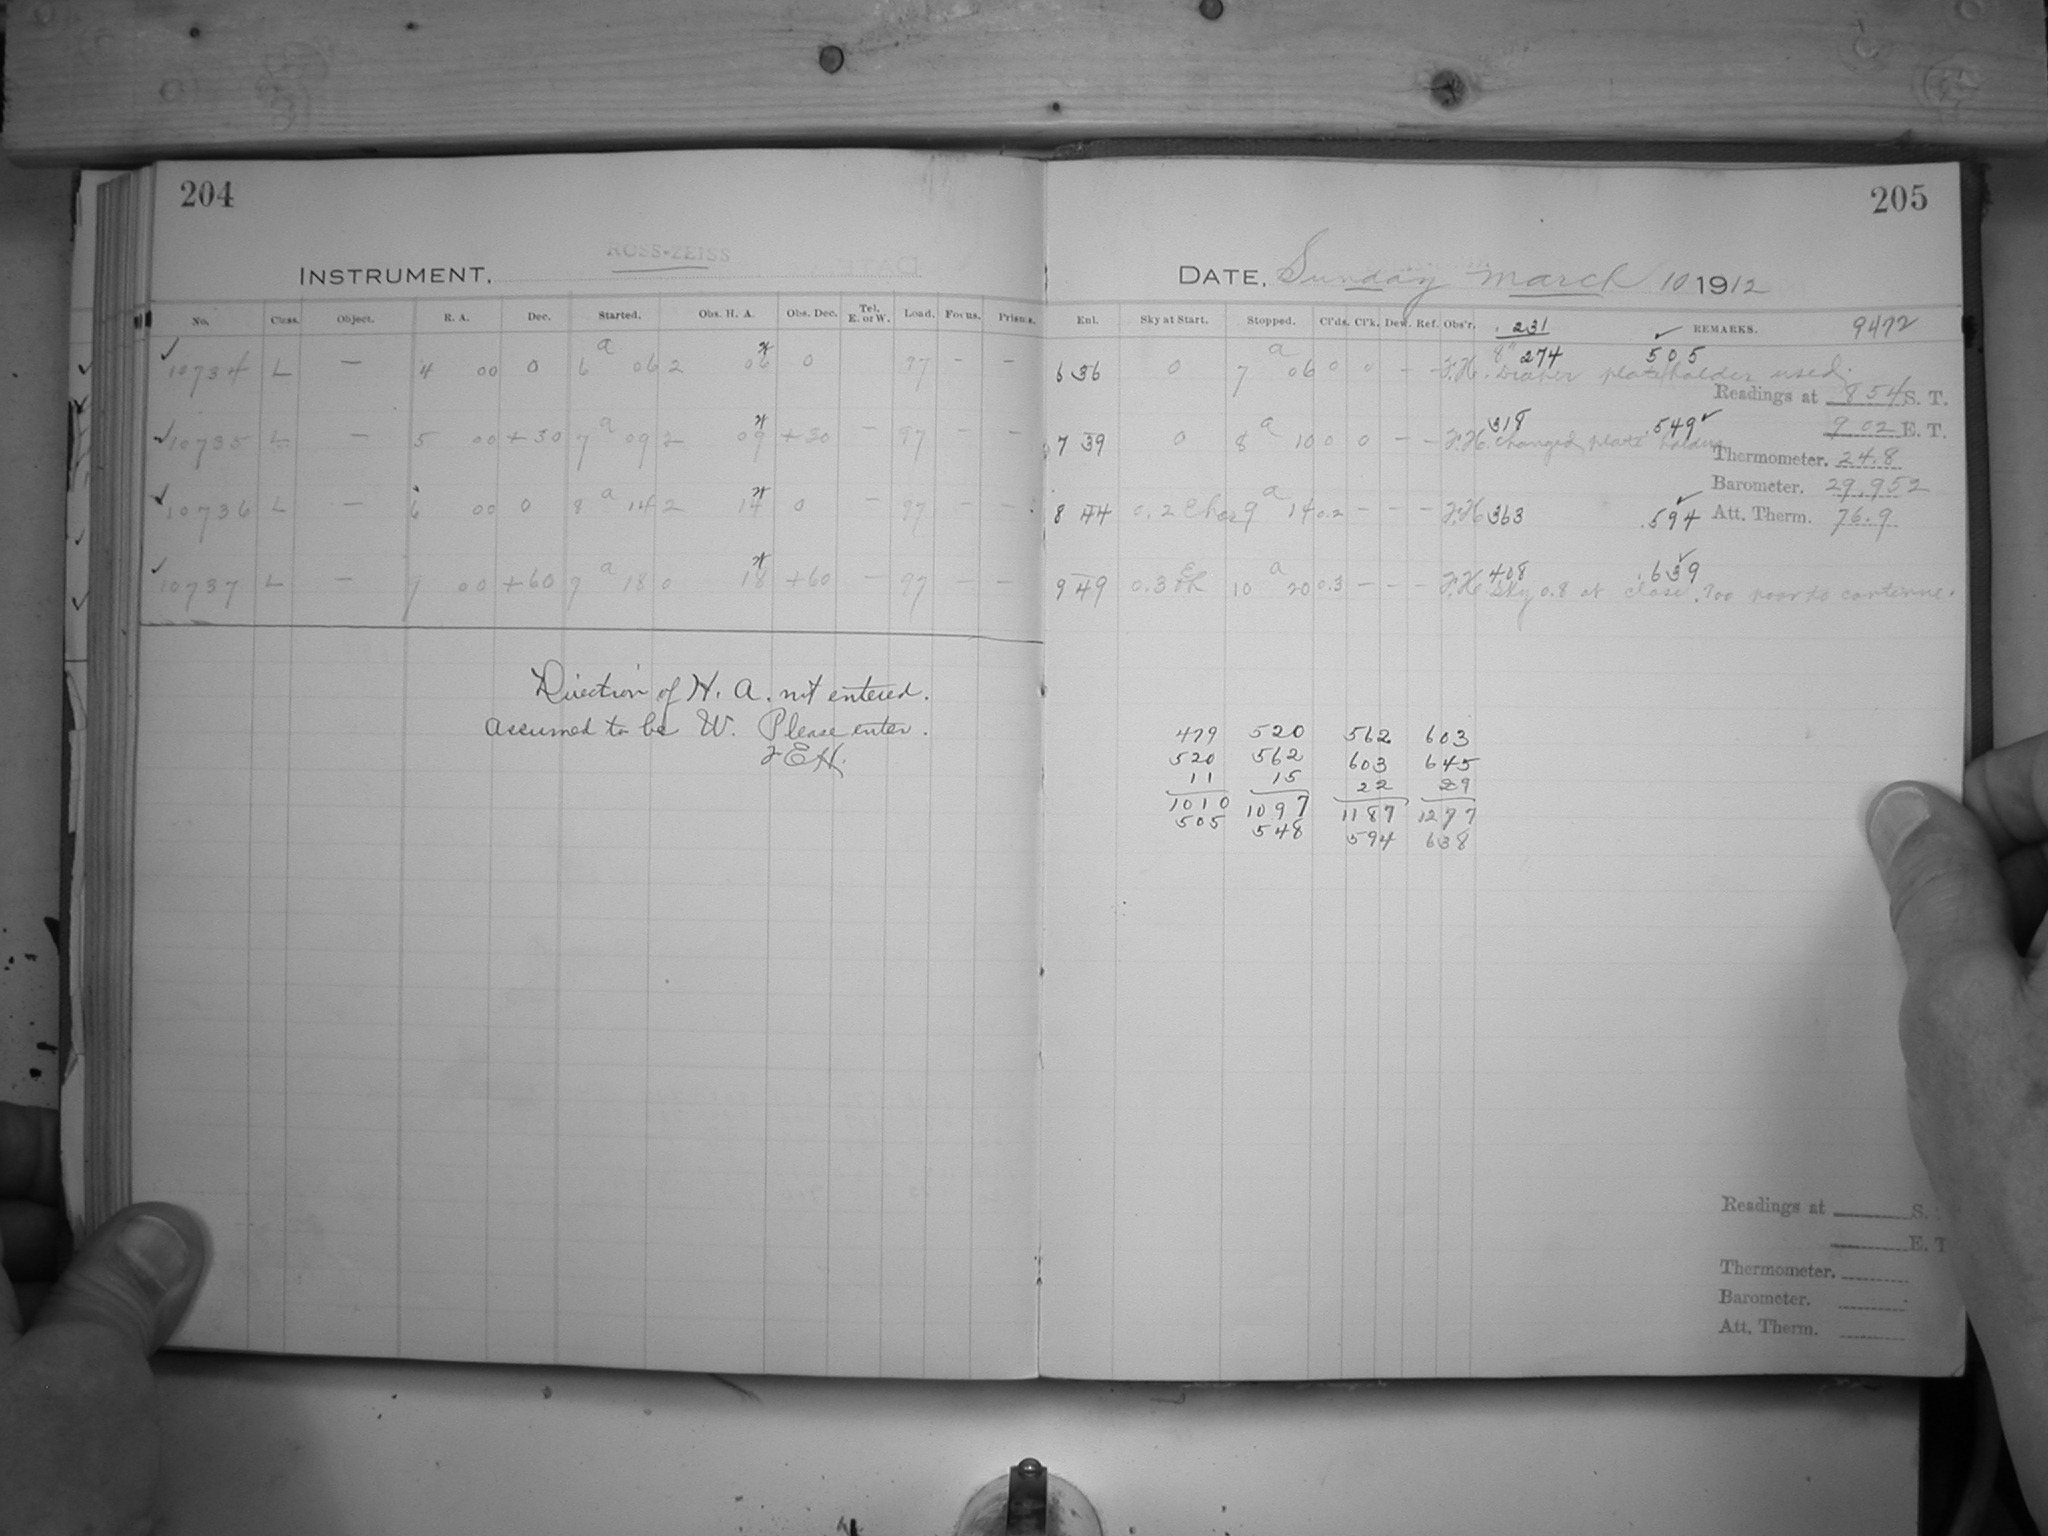 204
ROSS-ZEISS
INSTRUMENT,
No. Class. Object. R. A. Dec. Started. Obs. H. A. Obs. Dec. Tel. E. or W. Load. Focus. Prisms.
10734 L — 4 00 0 6 a 06 2 06 0 97 — —
10735 L — 5 00 +30 7 a 09 2 09 +30 — 97 — —
10736 L — 6 00 0 8 a 14 2 14 0 — 97 — —
10737 L — 9 00 +60 9 a 18 0 18 +60 — 97 — —
Direction of H. A. not entered.
assumed to be W. Please enter.
205
DATE, Sunday March 10 1912
Enl. Sky at Start. Stopped. Cl'ds. Cl'k. Dew. Ref. Obs'r. .231 REMARKS. 9472
8" 274 505
6 36 0 7 a 06 0 0 — — Draper plateholder used.
Readings at 8 54 S. T.
318 .549
7 39 0 8 a 10 0 0 — — Changed plate holders
9 02 E. T.
Thermometer. 24.8
Barometer. 29.952
8 44 0.2 9 a 14 0.2 — — — 363 .594
Att. Therm. 76.9
408 .639
9 49 0.3 10 a 20 0.3 — — — Sky 0.8 at close. Too poor to continue.
479 520 562 603
520 562 603 645
11 15 22 29
1010 1097 1187 1277
505 548 594 638
Readings at S.
E. T
Thermometer.
Barometer.
Att. Therm.